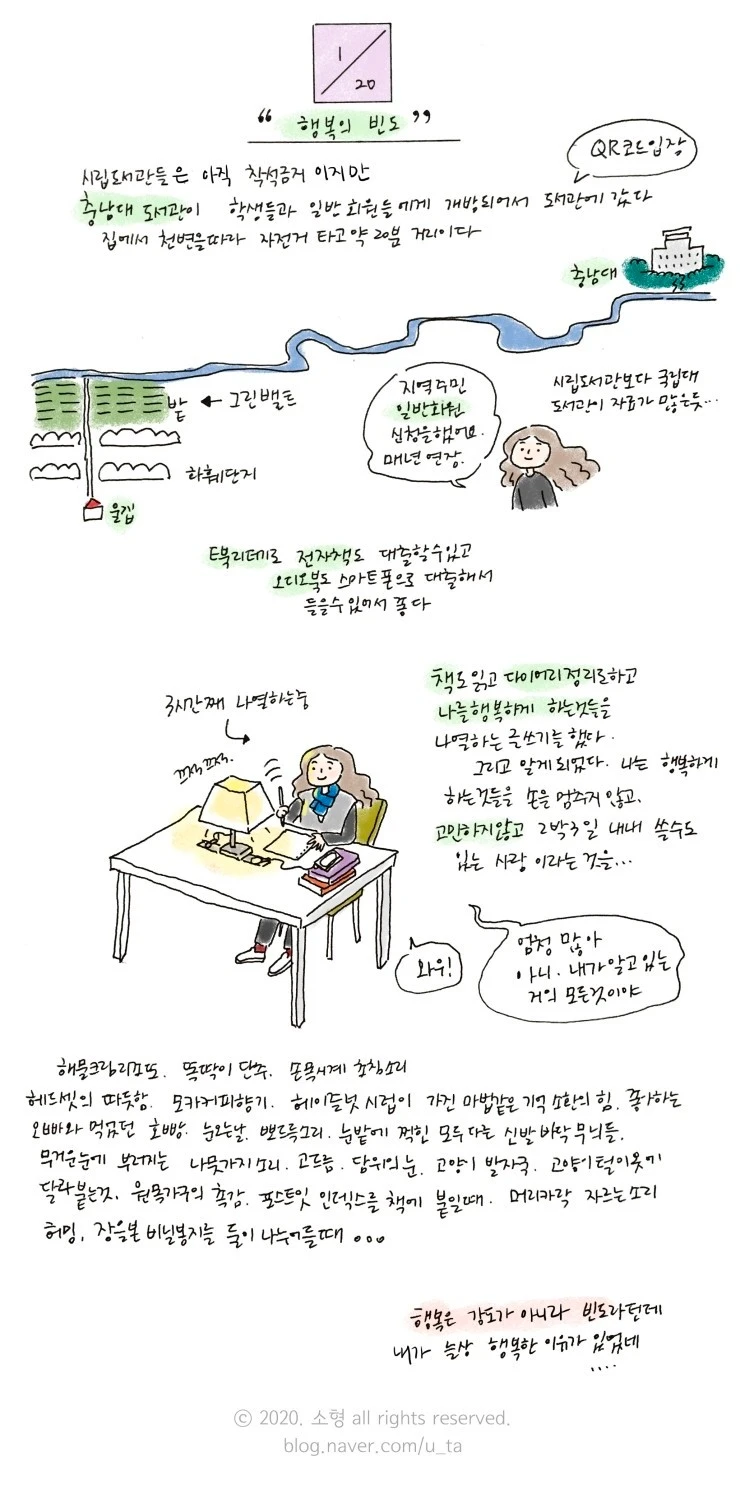 1/20
“ 행복의 빈도 ”
QR코드입장
시립도서관들은 아직 착석금지 이지만
충남대 도서관이 학생들과 일반 회원들에게 개방되어서 도서관에 갔다
집에서 천변을따라 자전거 타고 약 20분 거리이다
충남대
지역주민
일반회원
신청을했어요.
매년 연장.
시립도서관보다 국립대
도서관이 자료가 많은듯...
밭 ← 그린벨트
화훼단지
울집
E북리더기로 전자책도 대출할수있고
오디오북도 스마트폰으로 대출해서
들을수 있어서 좋다
3시간째 나열하는중
끄적끄적.
책도읽고 다이어리정리도하고
나를행복하게 하는것들을
나열하는 글쓰기를 했다.
그리고 알게 되었다. 나는 행복하게
하는것들을 손을 멈추지 않고,
고민하지않고 2박3일 내내 쓸수도
있는 사람 이라는 것을...
와우!
엄청 많아
아니. 내가 알고 있는
거의 모든것이야
해물크림리조또. 똑딱이 단추. 손목시계 초침소리
헤드셋의 따듯함. 모카커피향기. 헤이즐넛 시럽이 가진 마법같은 기억 소환의 힘. 좋아하는
오빠와 먹었던 호빵. 눈오는날. 뽀드득소리. 눈밭에 찍힌 모두 다른 신발 바닥 무늬들.
무거운눈에 부러지는 나뭇가지 소리. 고드름. 담위의 눈. 고양이 발자국. 고양이털이옷에
달라붙는것. 원목가구의 촉감. 포스트잇 인덱스를 책에 붙일때. 머리카락 자르는소리
허밍, 장을본 비닐봉지를 둘이 나누어들때 ...
행복은 강도가 아니라 빈도라던데
내가 늘상 행복한 이유가 있었네
....
© 2020. 소형 all rights reserved.
blog.naver.com/u_ta